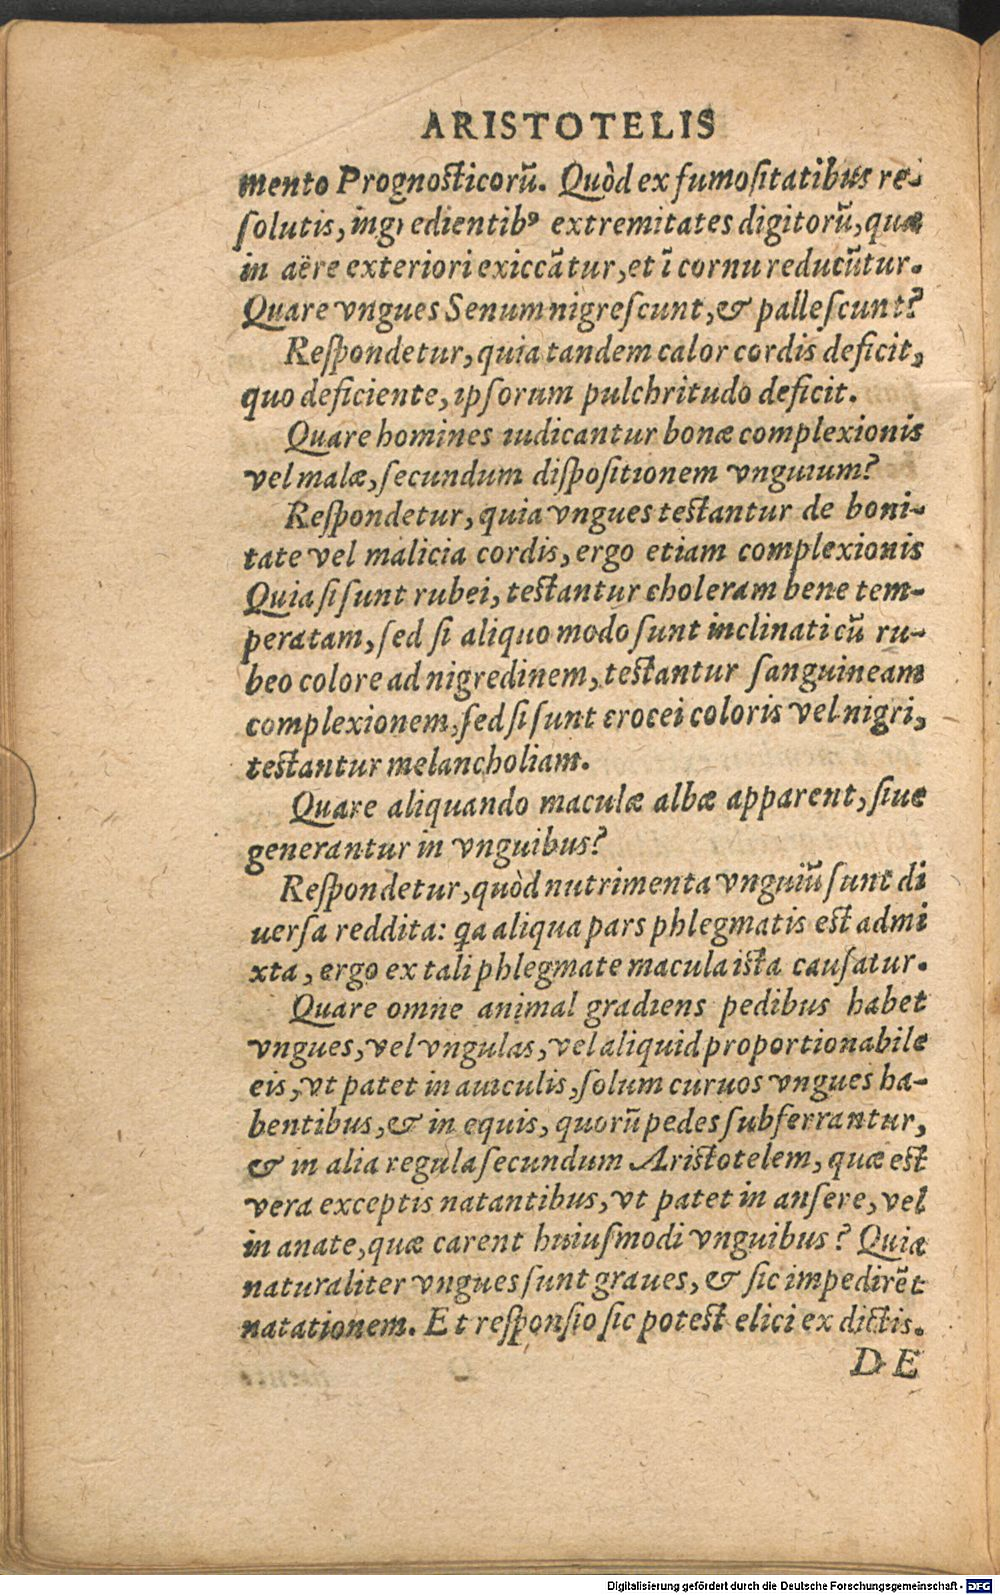 ARISTOTELIS
mento Prognosticorū. Quòd ex fumositatibus re-
solutis, ingredientibꝰ extremitates digitorū, quæ
in aëre exteriori exiccātur, et ī cornu reducūtur.
Quare vngues Senum nigrescunt, & pallescunt?
Respondetur, quia tandem calor cordis deficit,
quo deficiente, ipsorum pulchritudo deficit.
Quare homines iudicantur bonæ complexionis
vel malæ, secundum dispositionem vnguium?
Respondetur, quia vngues testantur de boni-
tate vel malicia cordis, ergo etiam complexionis
Quia si sunt rubei, testantur choleram bene tem-
peratam, sed si aliquo modo sunt inclinati cū ru-
beo colore ad nigredinem, testantur sanguineam
complexionem, sed si sunt crocei coloris vel nigri,
testantur melancholiam.
Quare aliquando maculæ albæ apparent, siue
generantur in vnguibus?
Respondetur, quòd nutrimenta vnguiū sunt di
uersa reddita: qa aliqua pars phlegmatis est admi
xta, ergo ex tali phlegmate macula ista causatur.
Quare omne animal gradiens pedibus habet
vngues, vel vngulas, vel aliquid proportionabile
eis, vt patet in auiculis, solum curuos vngues ha-
bentibus, & in equis, quorū pedes subferrantur,
& in alia regula secundum Aristotelem, quæ est
vera exceptis natantibus, vt patet in ansere, vel
in anate, quæ carent huiusmodi vnguibus? Quia
naturaliter vngues sunt graues, & sic impedirēt
natationem. Et responsio sic potest elici ex dictis.
DE
Digitalisierung gefördert durch die Deutsche Forschungsgemeinschaft - DFG